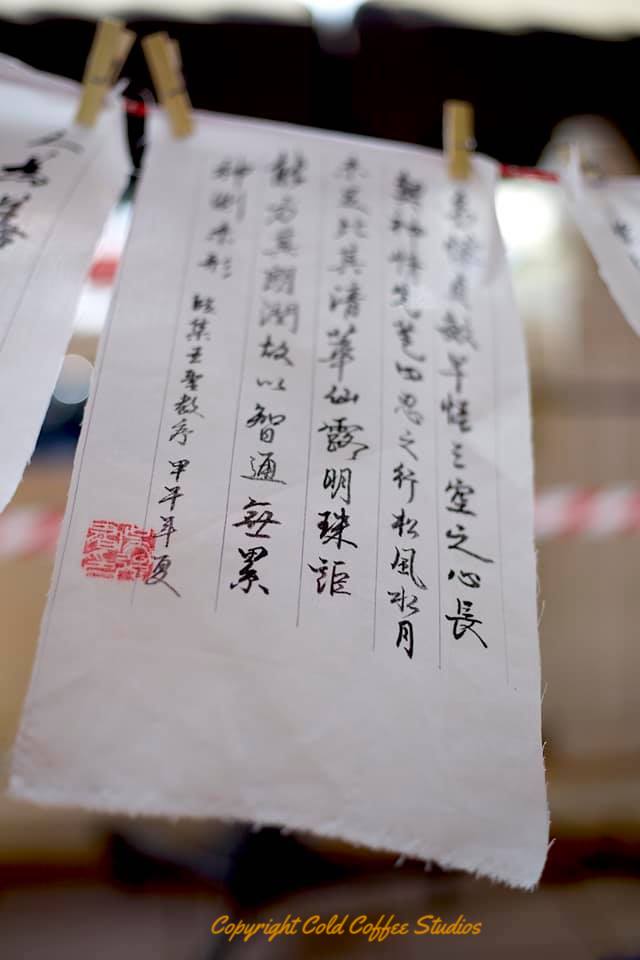 幼懷貞敏早悟三空之心長
契神情先苞四忍之行松風水月
未足比其清華仙露明珠詎
能方其朗潤故以智通無累
神測未形 集王聖教序 甲午年夏
人為
Copyright Cold Coffee Studios